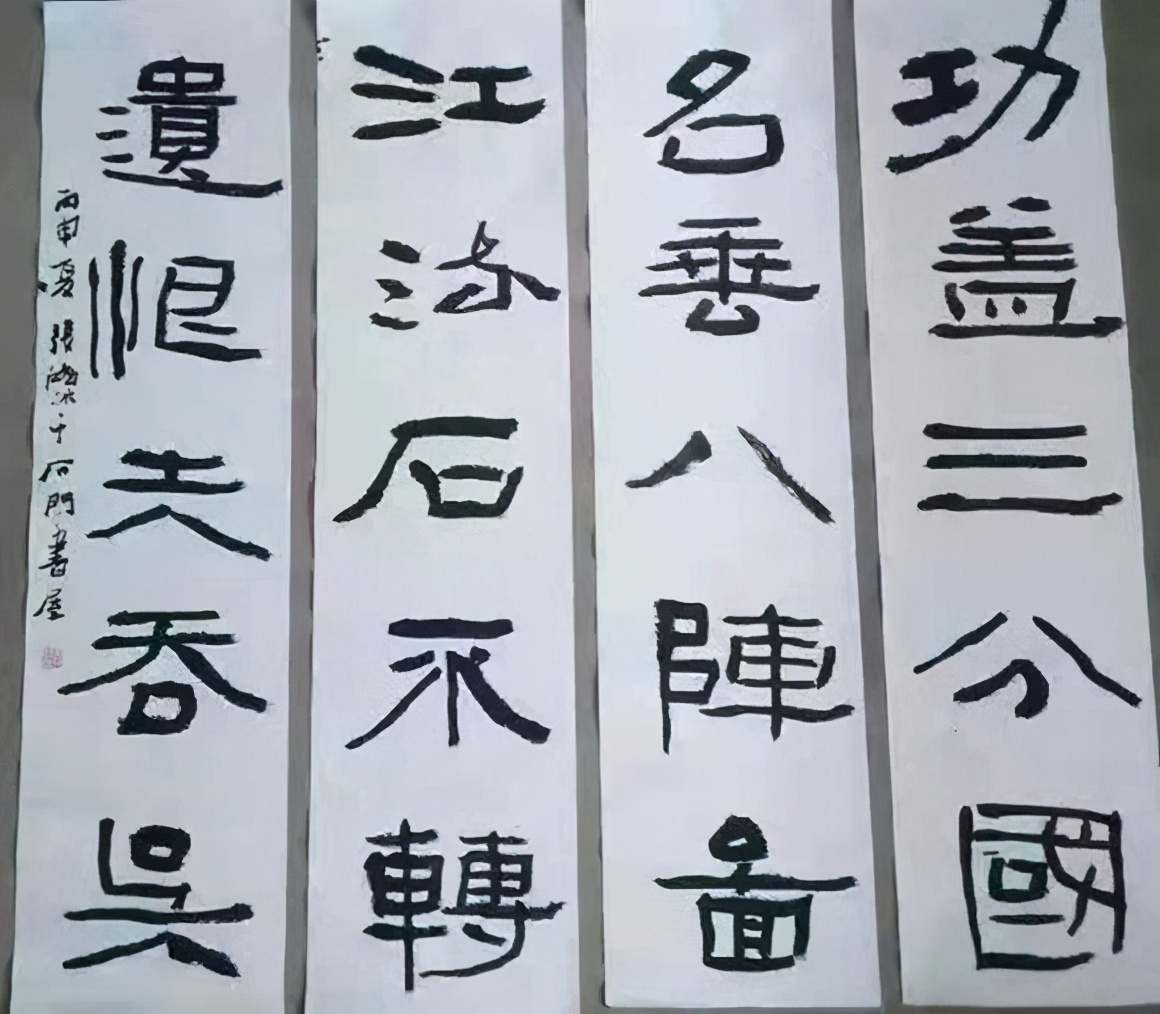 功盖三分國
名垂八陣啚
江流石不轉
遺恨失吞吳
丙申夏張于石門書屋